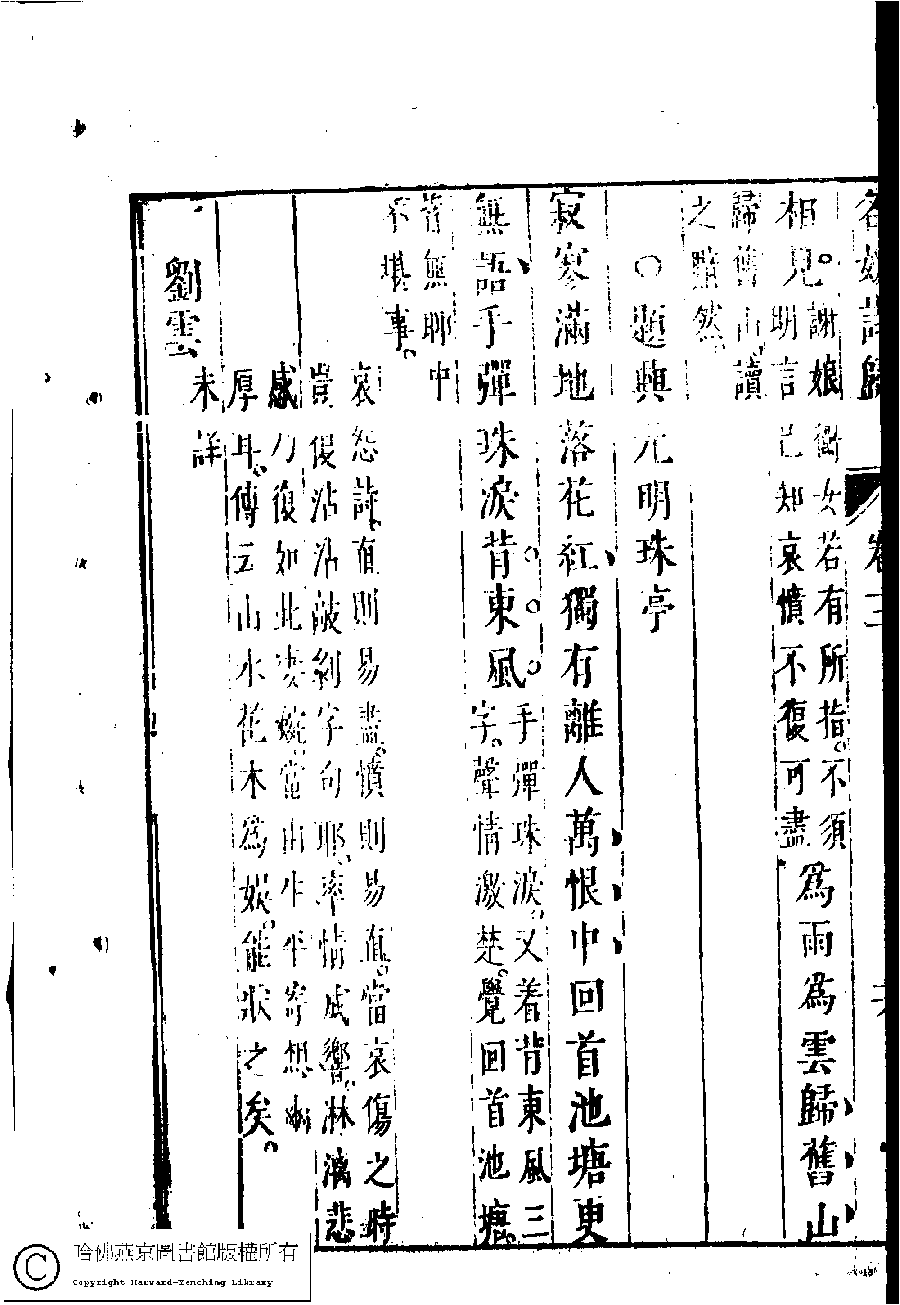 名媛詩歸 卷三
相見。謝娘衛女若有所指。不須
明言已知哀憤不復可盡
為雨為雲歸舊山
歸舊山。讀
之黯然。
○題興元明珠亭
寂寥滿地落花紅獨有離人萬恨中回首池塘更
無語手彈珠淚背東風
手彈珠淚。又着背東風三
字。聲情激楚。覺回首池塘。
皆無聊中
不堪事。
哀怨詩。直則易盡。憤則易直。當哀傷之時
豈復沾沾敲剝字句耶。率情感響。淋漓悲
感乃復如此淒婉。當由生平寄想幽
厚耳。傳云山水花木為娛。能狀之矣。
劉雲
未詳
哈佛燕京圖書館版權所有
Copyright Harvard-Yenching Library